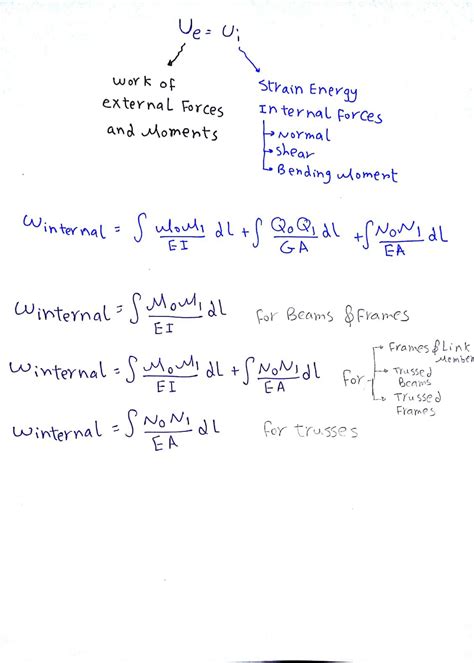 Ue = Ui
Work of
external Forces
and Moments
Strain Energy
Internal Forces
→ Normal
→ Shear
→ Bending Moment
Winternal = ∫ M₀M₁/EI dL + ∫ Q₀Q₁/GA dL + ∫ N₀N₁/EA dL
Winternal = ∫ M₀M₁/EI dL For Beams & Frames
Winternal = ∫ M₀M₁/EI dL + ∫ N₀N₁/EA dL For
→ Frames & Link Member
→ Trussed Beams
→ Trussed Frames
Winternal = ∫ N₀N₁/EA dL For trusses